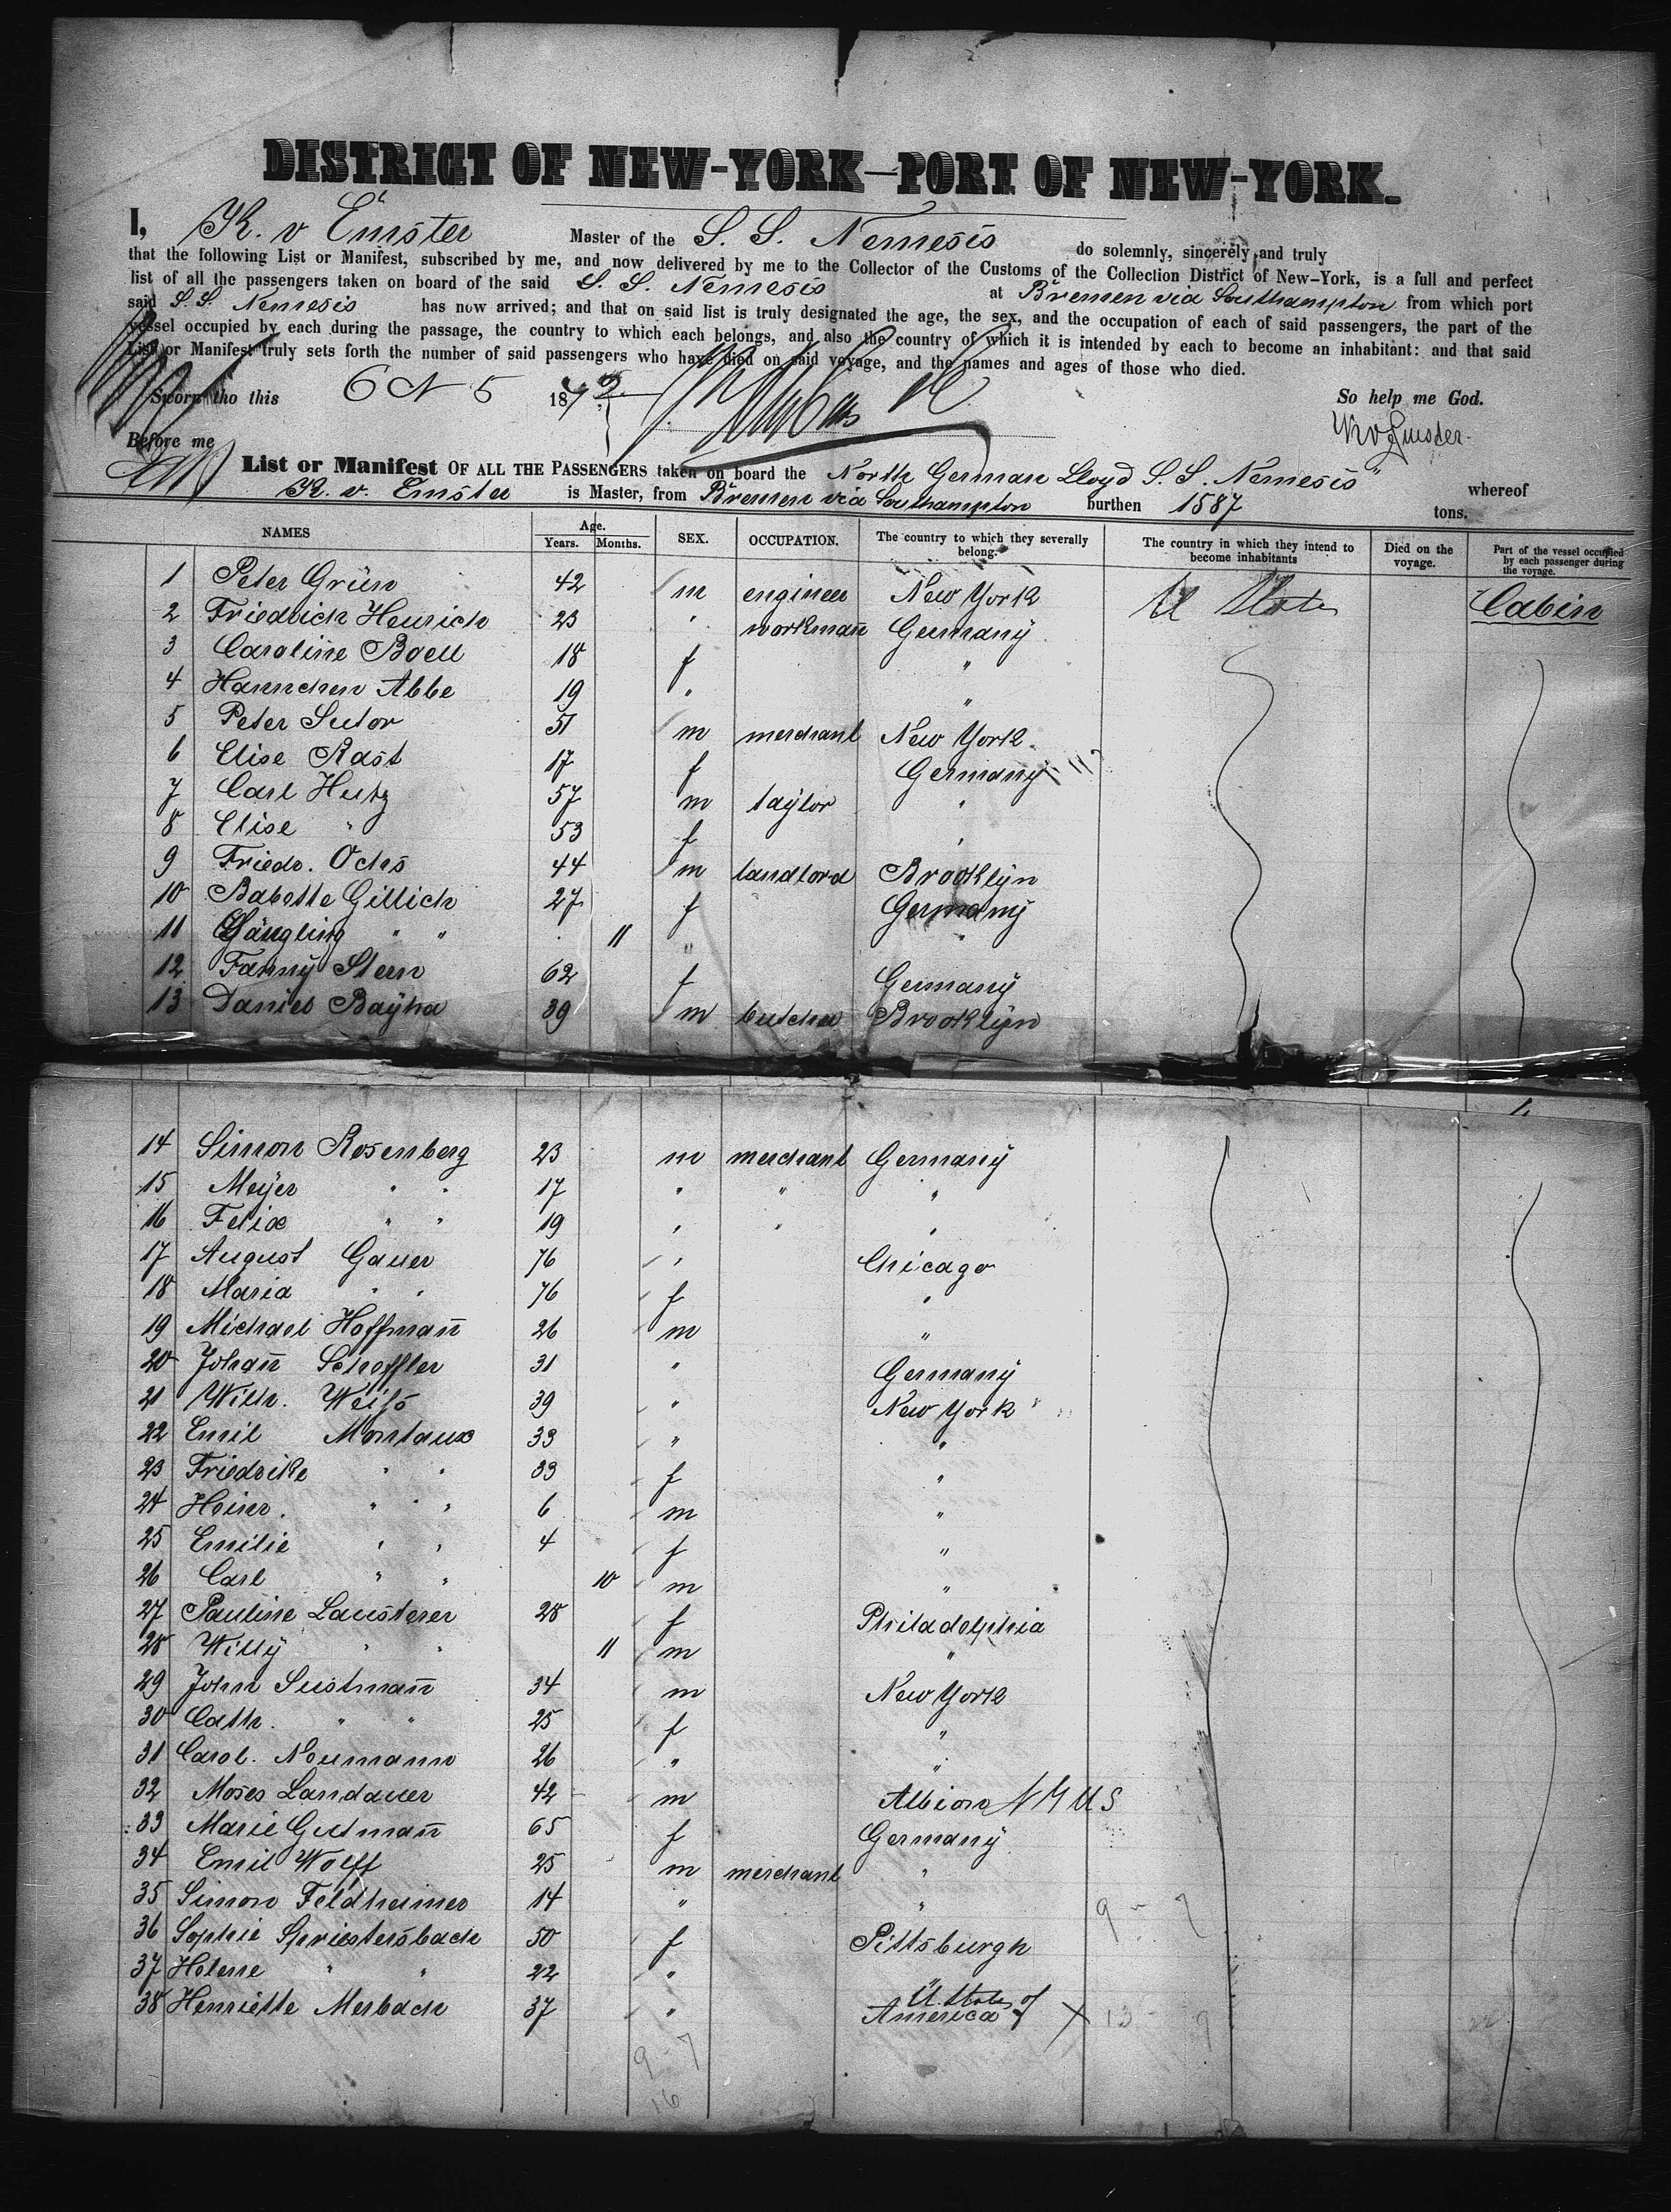 DISTRICT OF NEW-YORK—PORT OF NEW-YORK.
I, K. v Emster Master of the S. S. Nemesis do solemnly, sincerely and truly
that the following List or Manifest, subscribed by me, and now delivered by me to the Collector of the Customs of the Collection District of New-York, is a full and perfect
list of all the passengers taken on board of the said S. S. Nemesis at Bremen via Southampton from which port
said S. S. Nemesis has now arrived; and that on said list is truly designated the age, the sex, and the occupation of each of said passengers, the part of the
vessel occupied by each during the passage, the country to which each belongs, and also the country of which it is intended by each to become an inhabitant: and that said
List or Manifest truly sets forth the number of said passengers who have died on said voyage, and the names and ages of those who died.
Sworn tho this 6 N 5 1872 So help me God.
Before me K v Emster
List or Manifest OF ALL THE PASSENGERS taken on board the North German Lloyd S. S. Nemesis" whereof
K. v. Emster is Master, from Bremen via Southampton burthen 1587 tons.
NAMES Age. Years. Months. SEX. OCCUPATION. The country to which they severally belong. The country in which they intend to become inhabitants Died on the voyage. Part of the vessel occupied by each passenger during the voyage.
1 Peter Grün 42 m engineer New York U States Cabin
2 Friedrich Heinrich 23 " workmañ Germany
3 Caroline Boell 18 f "
4 Hannchen Abbe 19 " "
5 Peter Sutor 51 m merchant New York
6 Elise Rast 17 f Germany
7 Carl Hutz 57 m taylor "
8 Elise " 53 f "
9 Friedr. Ochs 44 m landlord Brooklyn
10 Babette Gillich 27 f Germany
11 Säugling " " 11 " "
12 Fanny Stern 62 f Germany
13 Daniel Bayha 39 m butcher Brooklyn
14 Simon Rosenberg 23 m merchant Germany
15 Meyer " " 17 " " "
16 Felix " " 19 " " "
17 August Gauer 76 " Chicago
18 Maria " " 76 f "
19 Michael Hoffmañ 26 m "
20 Johañ Scheffler 31 " Germany
21 Wilh. Weiſs 39 " New York
22 Emil Montaux 33 " "
23 Friedrike " " 33 f "
24 Heinr. " " " 6 m "
25 Emilie " " 4 f "
26 Carl " " 10 m "
27 Pauline Lausterer 28 f Philadelphia
28 Willy " " 11 m "
29 John Sustmañ 34 m New York
30 Cath. " " 25 f "
31 Carol. Neumann 26 " "
32 Moses Landauer 42 m Albion N Y U S
33 Marie Gutmañ 65 f Germany
34 Emil Wolff 25 m merchant "
35 Simon Feldheimer 14 " "
36 Sophie Spriestersbach 50 f Pittsburgh
37 Helene " " 22 " "
38 Henriette Merbach 37 " U. States of America
9 - 7
16